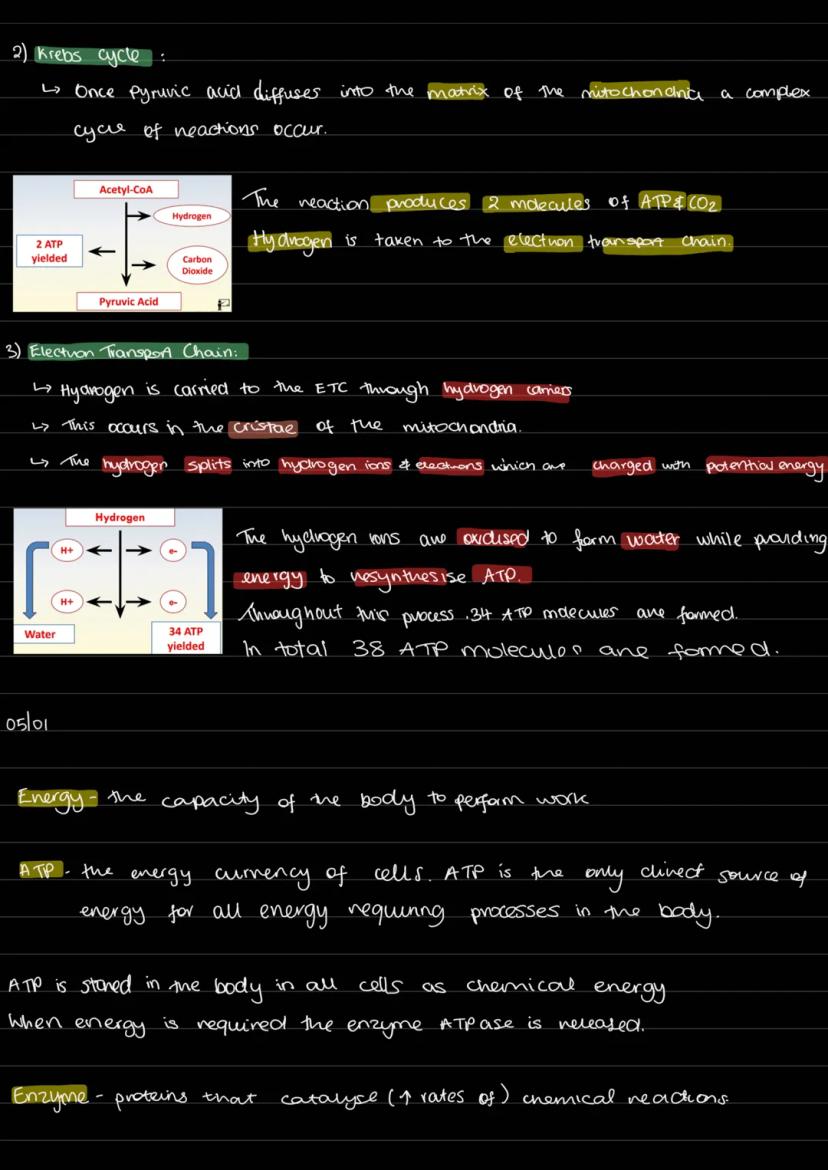 2) Krebs cycle :
↳ Once Pyruvic acid diffuses into the matrix of the mitochondria a complex
cycle of reactions occur.
Acetyl-CoA
Hydrogen
2 ATP
yielded
Carbon
Dioxide
Pyruvic Acid
The reaction produces 2 molecules of ATP & CO2
Hydrogen is taken to the electron transport chain.
3) Electron Transport Chain:
↳ Hydrogen is carried to the ETC through hydrogen carriers
↳ This occurs in the cristae of the mitochondria.
↳ The hydrogen splits into hydrogen ions & electrons which are charged with potential energy
Hydrogen
H+
e-
H+
e-
Water
34 ATP
yielded
The hydrogen ions are oxidised to form water while providing
energy to resynthesise ATP.
Throughout this process .34 ATP molecules are formed.
In total 38 ATP molecules are formed.
05/01
Energy - the capacity of the body to perform work
ATP - the energy currency of cells. ATP is the only direct source of
energy for all energy requiring processes in the body.
ATP is stored in the body in all cells as chemical energy
When energy is required the enzyme ATPase is released.
Enzyme - proteins that catalyse (↑ rates of) chemical reactions